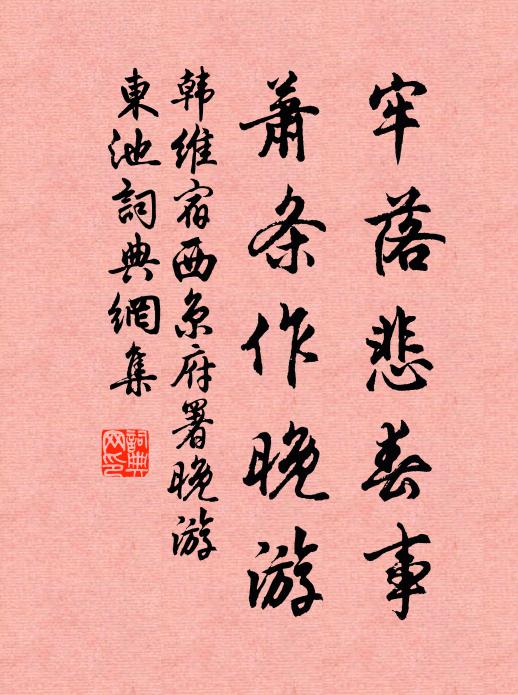 牢落悲春事
蕭条作晚游
韩維宿西京府署晚游
東池詞典網集
詞典網印